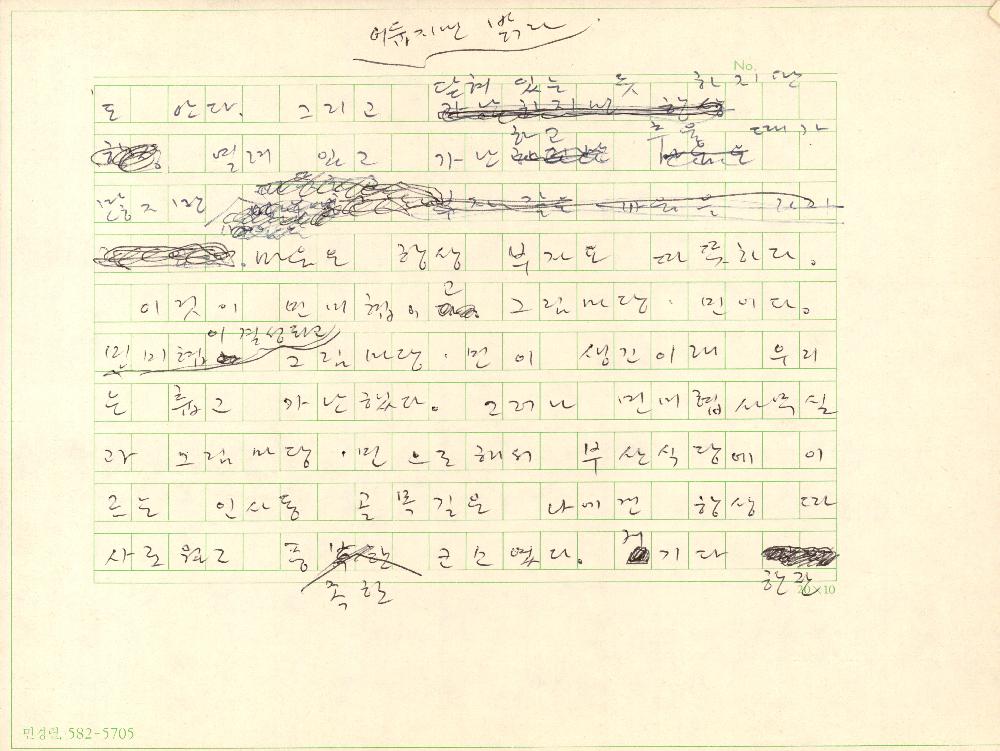 어둡지만 밝다
No.
닫혀 있는 듯 하지만
도 안다. 그리고
하고 추울 때가
열려 있고 가난
많지만
마음은 항상 부자고 따뜻하다.
이것이 민미협이고 그림마당·민이다.
이 결성되고
민미협 그림마당·민이 생긴이래 우리
는 춥고 가난했다. 그러나 민미협사무실
과 그림마당·민으로해서 부산식당에 이
르는 인사동 골목길은 나에겐 항상 따
사로웠고 풍 곳으였다. 거기다
족한 한잔
20×10
민경련, 582-5705